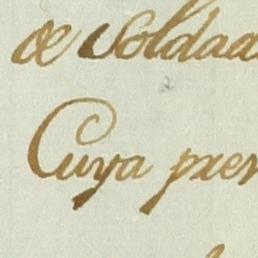 de Soldad
Cuya pres